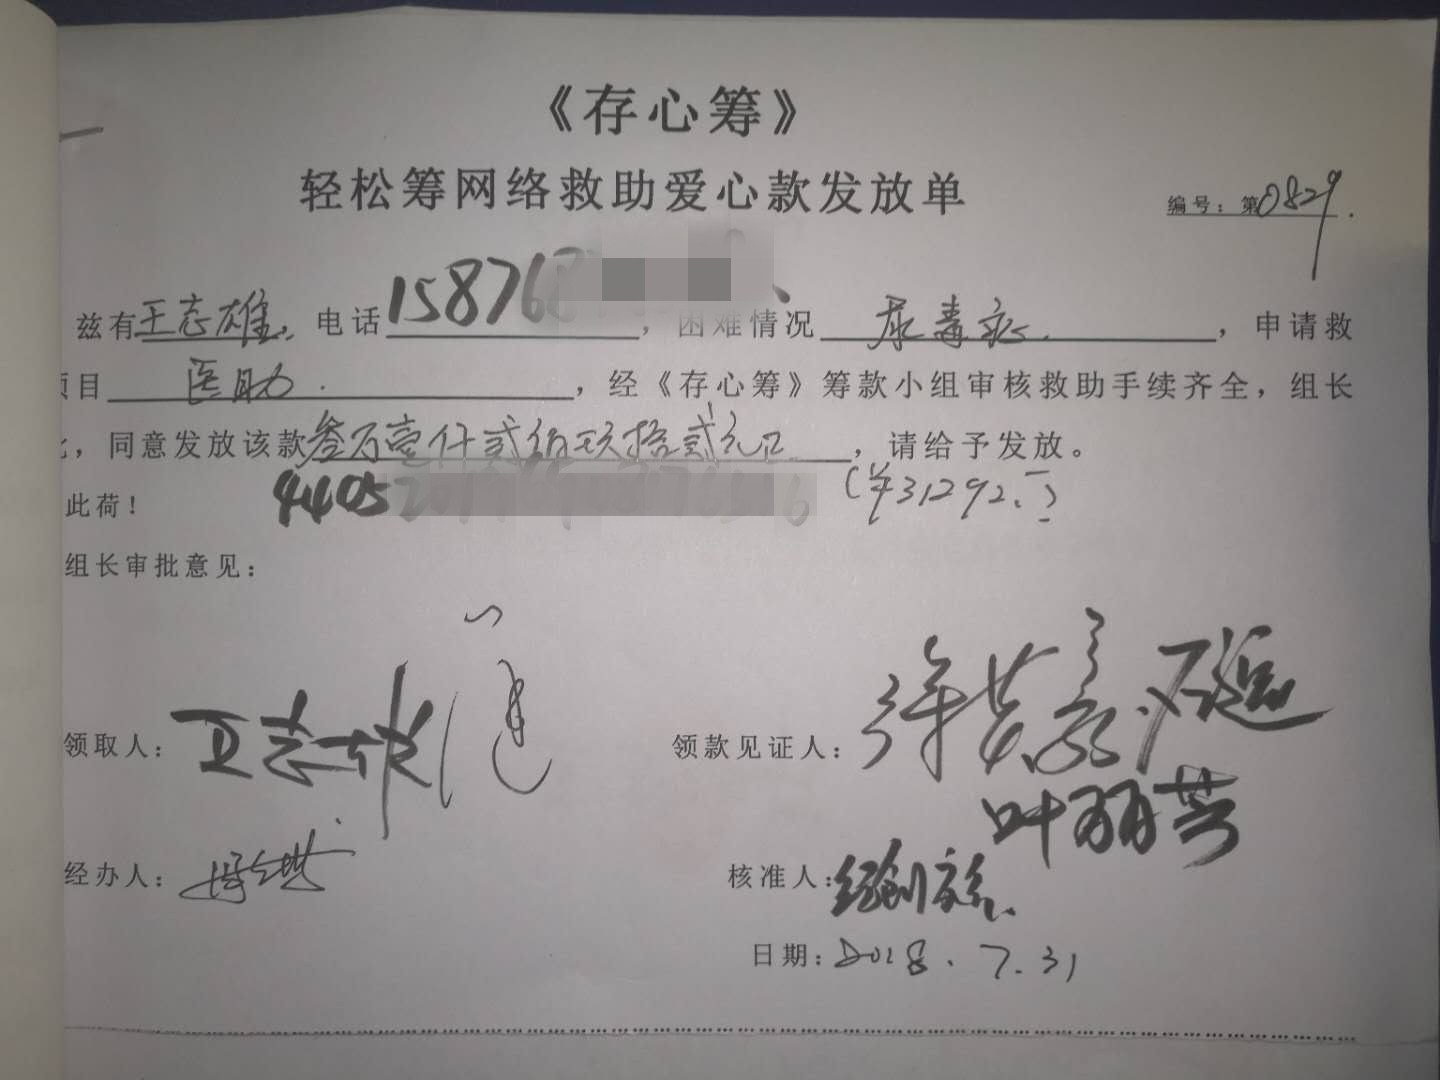 《存心筹》
轻松筹网络救助爱心款发放单
编号：第0829.
兹有王志雄，电话158768，困难情况尿毒症.，申请救
项目医助.，经《存心筹》筹款小组审核救助手续齐全，组长
，同意发放该款叁万壹仟贰佰玖拾贰元正，请给予发放。
此荷！4405 (¥31292.-)
组长审批意见：
领取人：王志雄 领款见证人：
叶丽芸
经办人： 核准人：
日期：2018.7.31